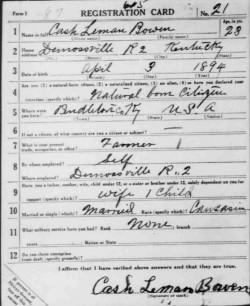 Form 1 REGISTRATION CARD No. 21
1 Name in full Cash Leman Bowen Age, in yrs. 23
2 Home address Demossville R2 Kentucky
3 Date of birth April 3 1894
4 Are you (1) a natural-born citizen, (2) a naturalized citizen, (3) an alien, (4) or have you declared your
intention (specify which)? Natural born Citizen
5 Where were you born? Ky U S A
6 If not a citizen, of what country are you a citizen or subject?
7 What is your present trade, occupation, or office? Farmer 1
8 By whom employed? Self
Where employed? Demossville R. 2
9 Have you a father, mother, wife, child under 12, or a sister or brother under 12, solely dependent on you for
support (specify which)? wife 1 Child
10 Married or single (which)? Married Race (specify which)? Caucasian
11 What military service have you had? Rank None ; branch
years ; Nation or State
12 Do you claim exemption from draft (specify grounds)?
I affirm that I have verified above answers and that they are true.
Cash Leman Bowen
(Signature or mark)